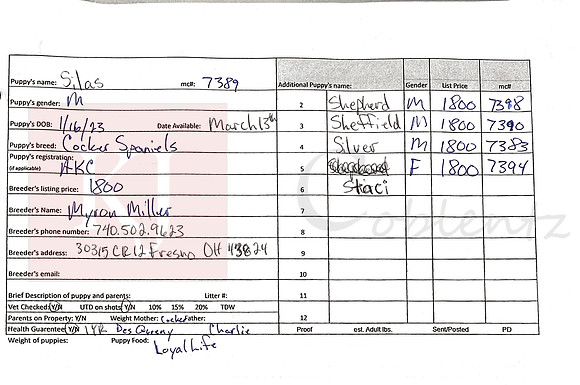 Puppy's name: Silas mc#: 7389 Additional Puppy's name: Gender List Price mc#
Puppy's gender: M 2 Shepherd M 1800 7398
Puppy's DOB: 1/16/23 Date Available: March 13th 3 Sheffield M 1800 7390
Puppy's breed: Cocker Spaniels 4 Silver M 1800 7383
Puppy's registration: AKC 5 F 1800 7394
(if applicable)
Breeder's listing price: 1800 6 Staci
Breeder's Name: Myron Miller 7
Breeder's phone number: 740.502.9623 8
Breeder's address: 30315 CR12 Fresno OH 43824 9
Breeder's email: 10
Brief Description of puppy and parents: Litter #: 11
Vet Checked: Y/N UTD on shots: Y/N 10% 15% 20% TDW
Parents on Property: Y/N Weight Mother: Cocker Father: 12
Health Guarantee: Y/N 1YR Charlie Proof est. Adult lbs. Sent/Posted PD
Weight of puppies: Puppy Food: Loyal Life
Coblentz